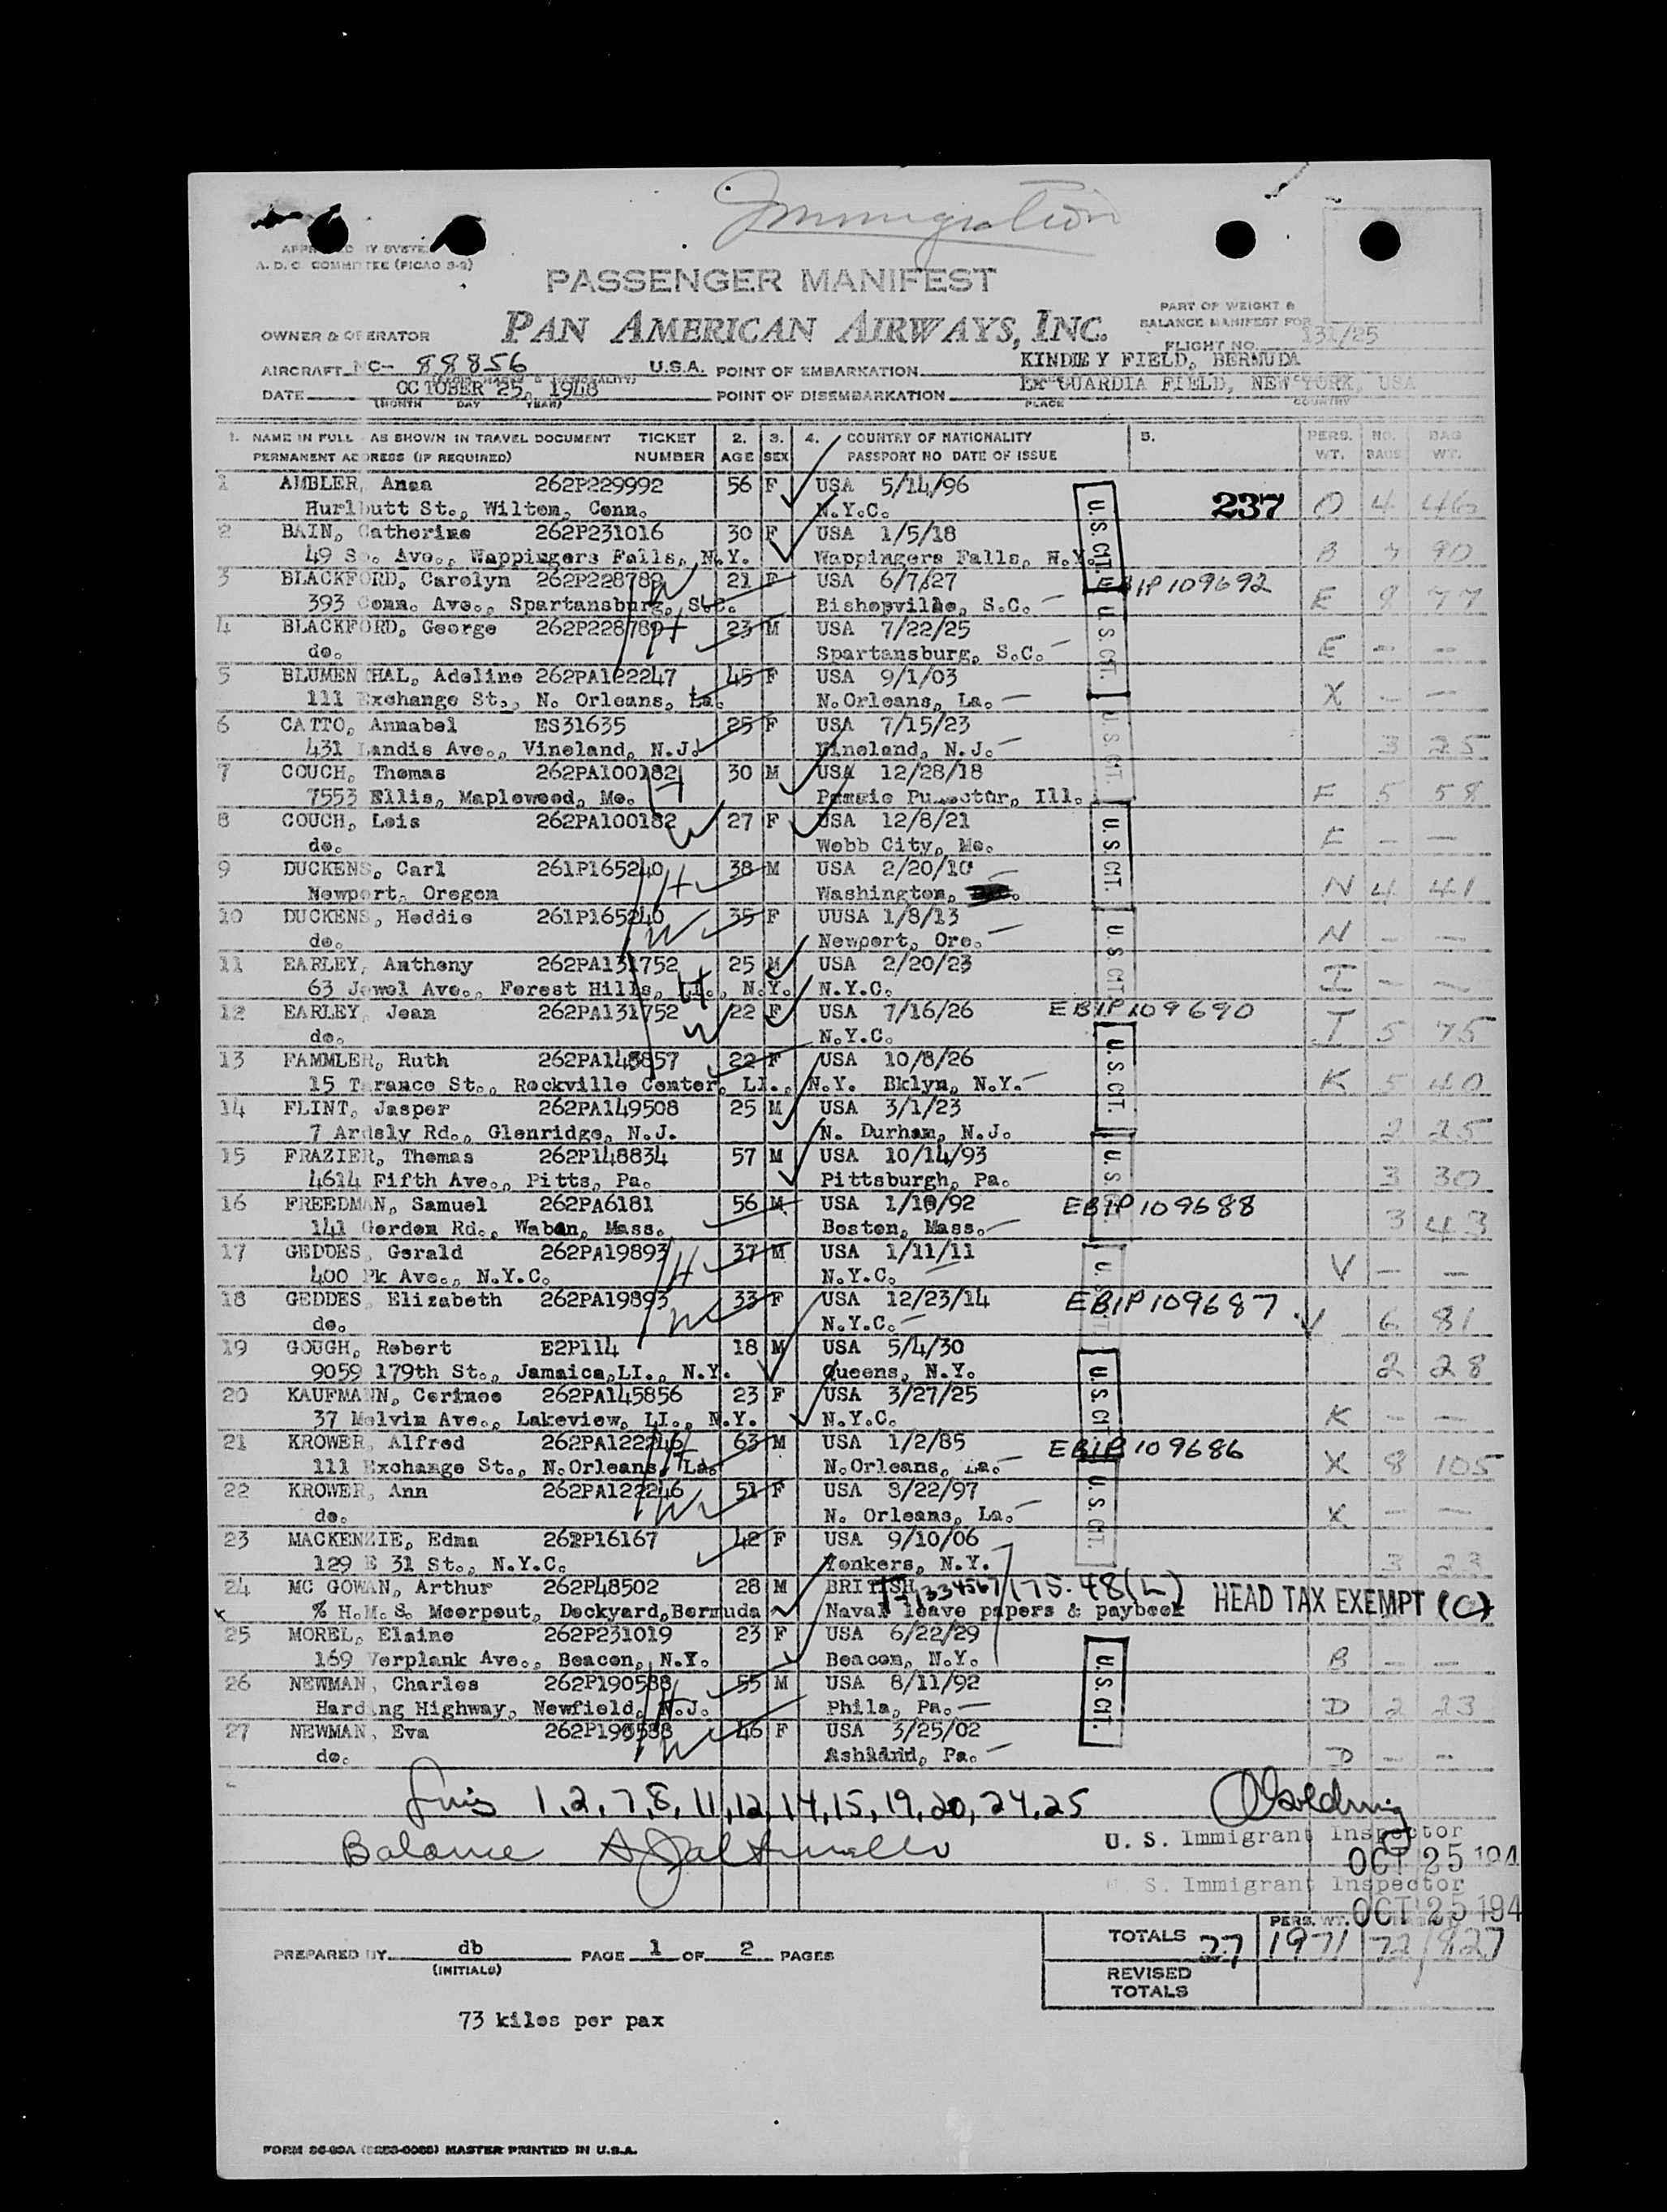 Immigration
A. D. C. COMMITTEE (PICAO 3-2)
PASSENGER MANIFEST
PART OF WEIGHT &
OWNER & OPERATOR PAN AMERICAN AIRWAYS, INC. BALANCE MANIFEST FOR
FLIGHT NO. 131/25
AIRCRAFT NC- 88856 U.S.A. POINT OF EMBARKATION KINDLEY FIELD, BERMUDA
DATE OCTOBER 25, 1948 POINT OF DISEMBARKATION GUARDIA FIELD, NEW YORK, USA
(MONTH DAY YEAR) PLACE COUNTRY
1. NAME IN FULL - AS SHOWN IN TRAVEL DOCUMENT TICKET 2. 3. 4. COUNTRY OF NATIONALITY 5. PERS. NO. BAG
PERMANENT ADDRESS (IF REQUIRED) NUMBER AGE SEX PASSPORT NO DATE OF ISSUE WT. BAGS WT.
1 AMBLER, Anna 262P229992 56 F USA 5/14/96
Hurlbutt St., Wilton, Conn. N.Y.C. 237 O 4 46
2 BAIN, Catherine 262P231016 30 F USA 1/5/18
49 So. Ave., Wappingers Falls, N.Y. Wappingers Falls, N.Y. B 7 90
3 BLACKFORD, Carolyn 262P228789 W 21 F USA 6/7/27 EBIP109692
393 Conn. Ave., Spartansburg, S.C. Bishopville, S.C. E 8 77
4 BLACKFORD, George 262P228789 H 23 M USA 7/22/25
do. Spartansburg, S.C. E - -
5 BLUMENTHAL, Adeline 262PA122247 45 F USA 9/1/03
111 Exchange St., N. Orleans, La. N.Orleans, La. X - -
6 CATTO, Annabel ES31635 25 F USA 7/15/23
431 Landis Ave., Vineland, N.J. Vineland, N.J. 3 25
7 COUCH, Thomas 262PA100182 H 30 M USA 12/28/18
7553 Ellis, Maplewood, Mo. Ill. F 5 58
8 COUCH, Lois 262PA100182 W 27 F USA 12/8/21
do. Webb City, Mo. F - -
9 DUCKENS, Carl 261P165240 H 38 M USA 2/20/10
Newport, Oregon Washington, N 4 41
10 DUCKENS, Heddie 261P165240 W 35 F UUSA 1/8/13
do. Newport, Ore. N - -
11 EARLEY, Anthony 262PA131752 25 M USA 2/20/23
63 Jewel Ave., Forest Hills, LI., N.Y. N.Y.C. I - -
12 EARLEY, Jean 262PA131752 W 22 F USA 7/16/26 EBIP109690
do. N.Y.C. I 5 75
13 FAMMLER, Ruth 262PA145857 22 F USA 10/8/26
15 Tarance St., Rockville Center, LI., N.Y. Bklyn, N.Y. K 5 40
14 FLINT, Jasper 262PA149508 25 M USA 3/1/23
7 Ardsly Rd., Glenridge, N.J. N. Durham, N.J. 2 25
15 FRAZIER, Thomas 262P148834 57 M USA 10/14/93
4614 Fifth Ave., Pitts, Pa. Pittsburgh, Pa. 3 30
16 FREEDMAN, Samuel 262PA6181 56 M USA 1/10/92 EBIP109688
141 Gordon Rd., Waban, Mass. Boston, Mass. 3 43
17 GEDDES, Gerald 262PA19893 H 37 M USA 1/11/11
400 Pk Ave., N.Y.C. N.Y.C. V - -
18 GEDDES, Elizabeth 262PA19893 W 33 F USA 12/23/14 EBIP109687
do. N.Y.C. V 6 81
19 GOUGH, Robert E2P114 18 M USA 5/4/30
9059 179th St., Jamaica,LI., N.Y. Queens, N.Y. 2 28
20 KAUFMANN, Corinne 262PA145856 23 F USA 3/27/25
37 Melvin Ave., Lakeview, LI., N.Y. N.Y.C. K - -
21 KROWER, Alfred 262PA122246 H 63 M USA 1/2/85 EBIP109686
111 Exchange St., N.Orleans, La. N.Orleans, La. X 8 105
22 KROWER, Ann 262PA122246 W 51 F USA 8/22/97
do. N. Orleans, La. X - -
23 MACKENZIE, Edna 262P16167 42 F USA 9/10/06
129 E 31 St., N.Y.C. Yonkers, N.Y. 3 23
24 MC GOWAN, Arthur 262P48502 28 M BRITISH HEAD TAX EXEMPT (C)
% H.M.S. Moorpout, Dockyard,Bermuda Naval leave papers & paybook
25 MOREL, Elaine 262P231019 23 F USA 6/22/29
169 Verplank Ave., Beacon, N.Y. Beacon, N.Y. B - -
26 NEWMAN, Charles 262P190588 H 55 M USA 8/11/92
Harding Highway, Newfield, N.J. Phila, Pa. D 2 23
27 NEWMAN, Eva 262P190588 W 46 F USA 3/25/02
do. Ashland, Pa. D - -
U.S. CIT.
U.S. CIT.
U.S. CIT.
U.S. CIT.
U.S. CIT.
U.S. CIT.
U.S. CIT.
U.S. CIT.
U.S. CIT.
U.S. CIT.
1,2,7,8,11,12,14,15,19,20,24,25
Balance
U. S. Immigrant Inspector
OCT 25 194
U. S. Immigrant Inspector
OCT 25 194
TOTALS 27 PERS. WT. 1971 72 827
PREPARED BY db PAGE 1 OF 2 PAGES
(INITIALS)
REVISED
TOTALS
73 kilos per pax
MASTER PRINTED IN U.S.A.